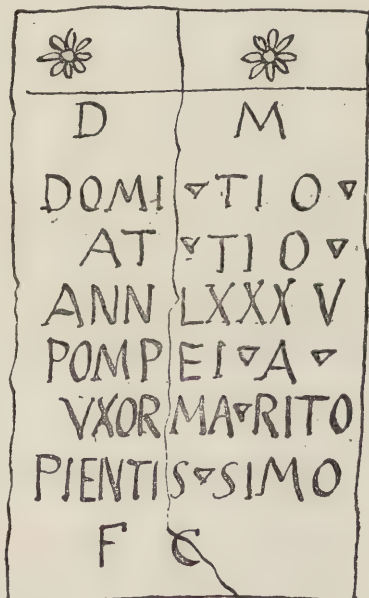 D M
DOMI▿TI O▿
AT▿TI O▿
ANN LXXX V
POMPEI▿A▿
VXOR MA▿RITO
PIENTIS▿SIMO
F C